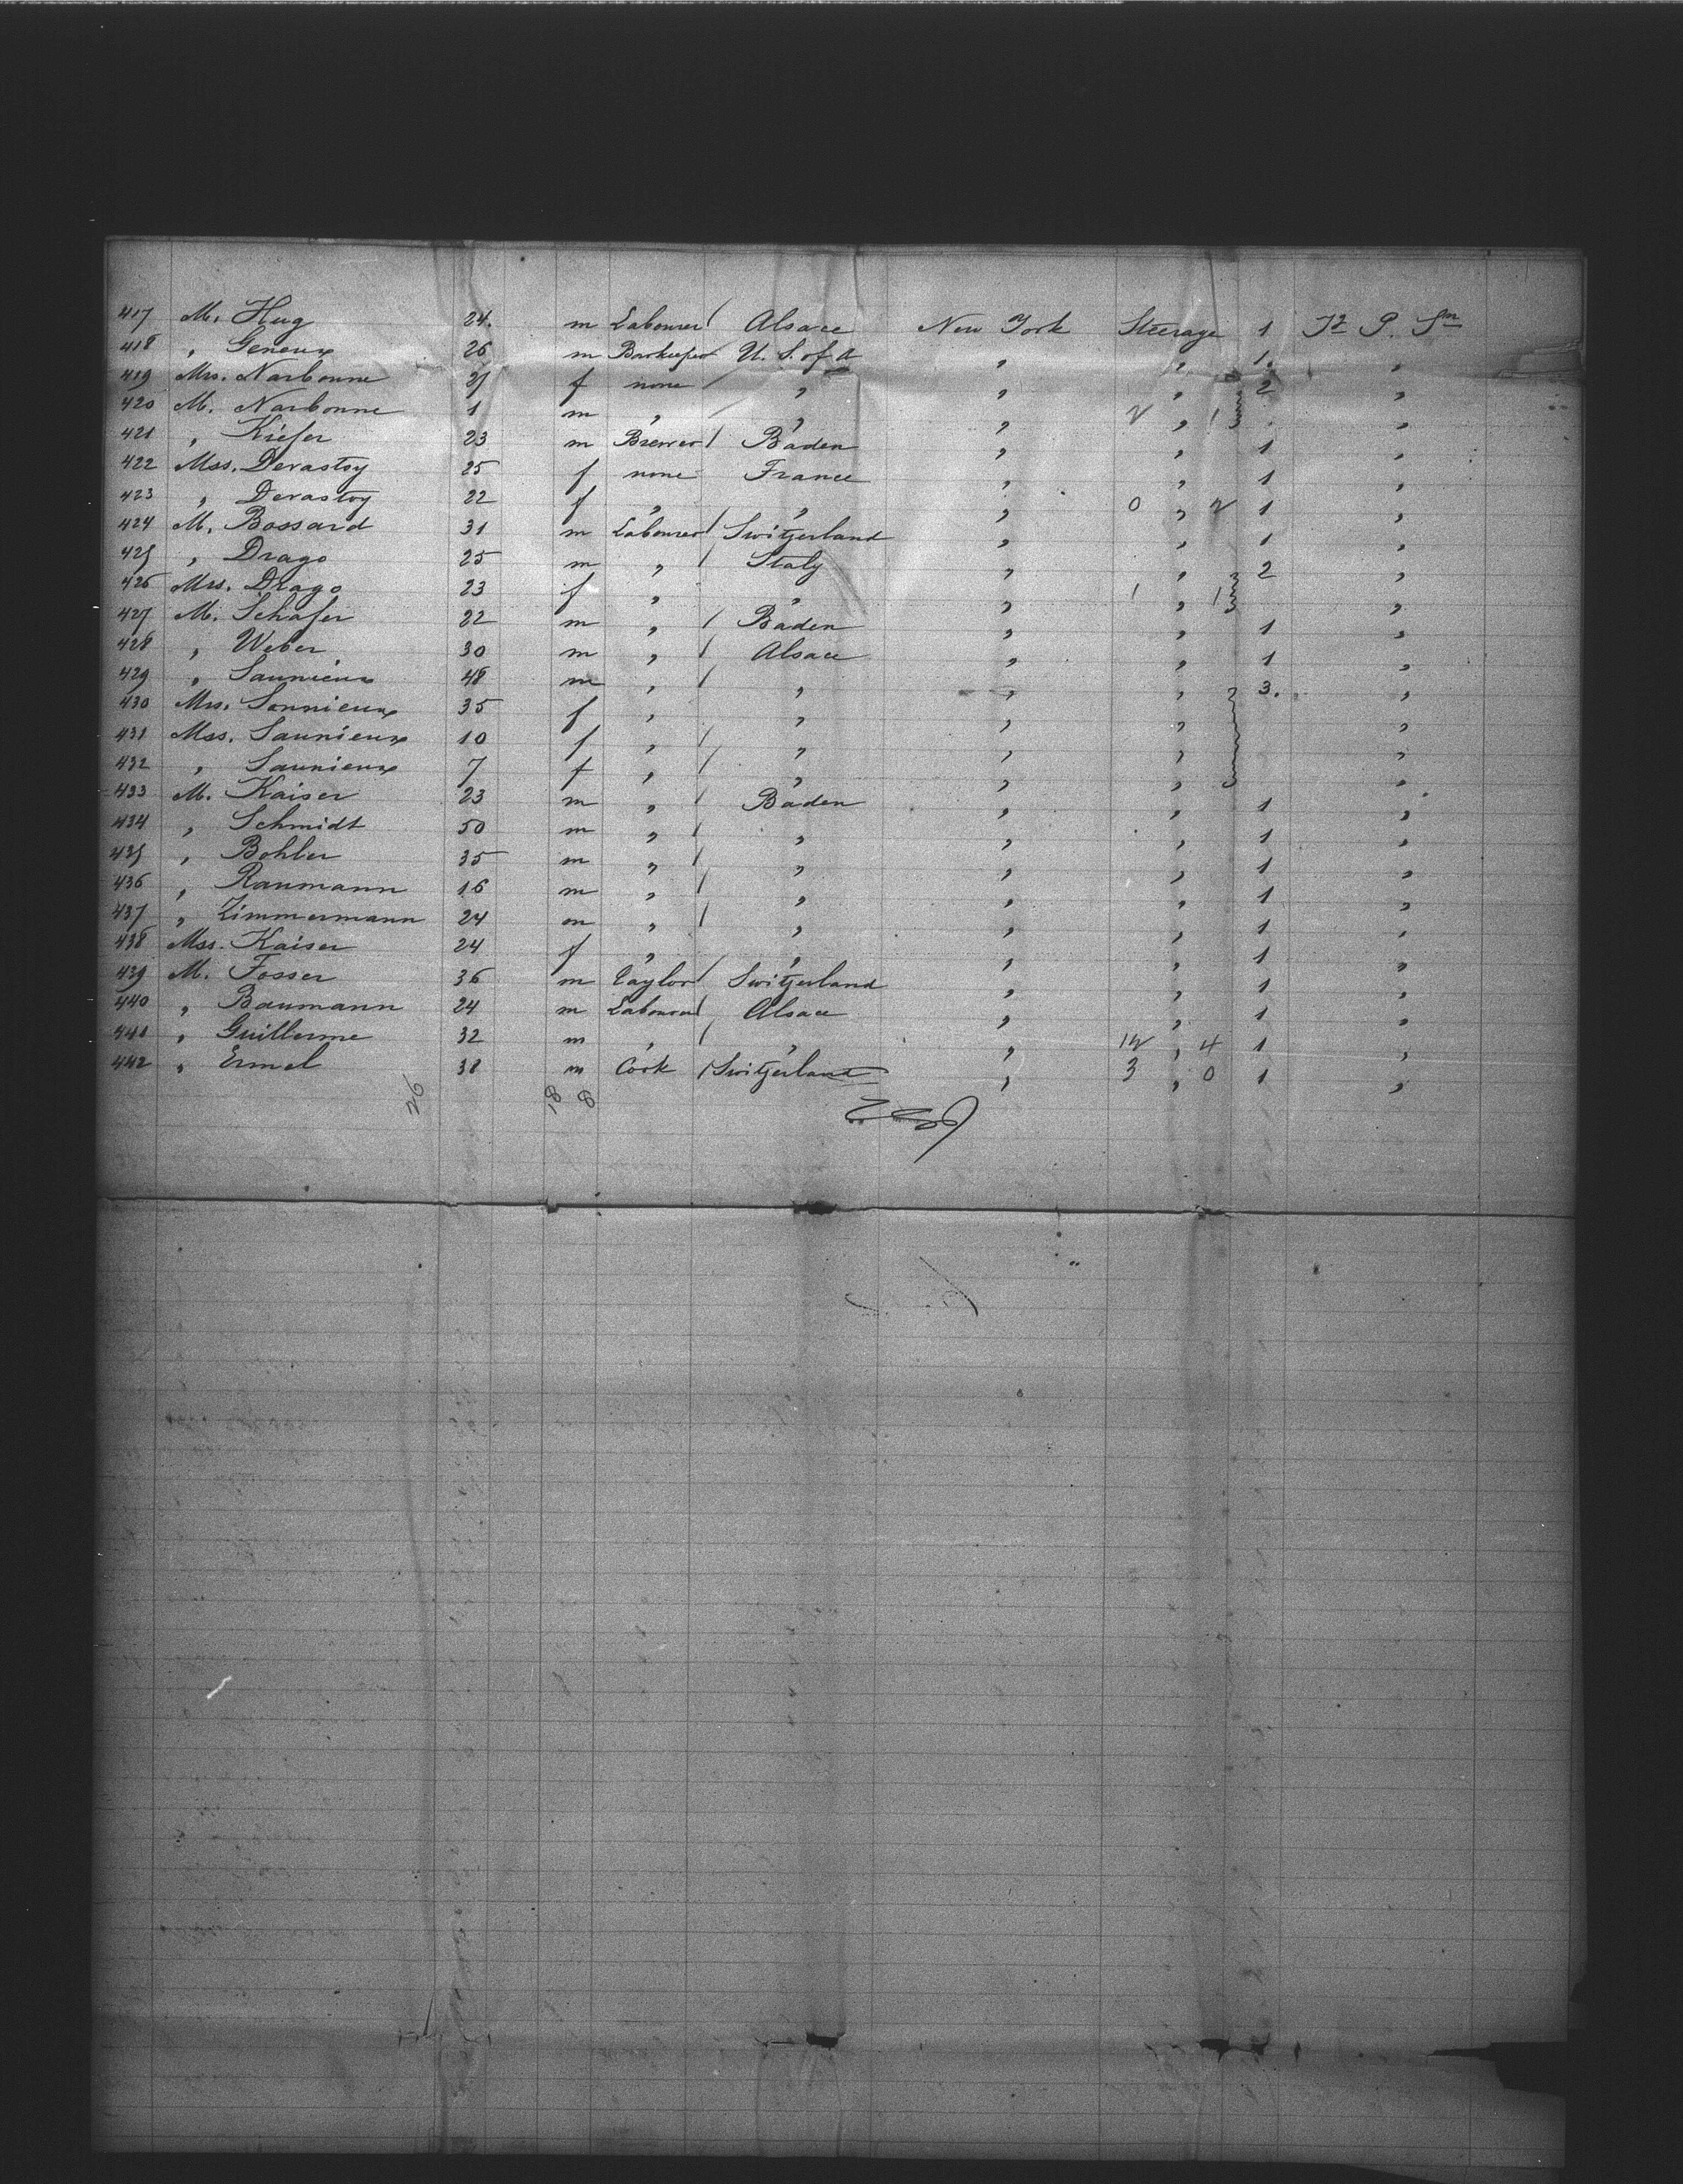 417 M. Hug 24. m Labourer / Alsace New York Steerage 1 J2 P. Sm
418 " Geneux 26 m Barkeeper U. S. of A " " 1. "
419 Mrs. Narbonne 21 f none / " " " 2 "
420 M. Narbonne 1 m " / " " 2 " 1 "
421 " Kiefer 23 m Brewer / Baden " " 1 "
422 Mss. Devastoy 25 f none France " " 1 "
423 " Devastoy 22 f " " " 0 " 2 1 "
424 M. Bossard 31 m Labourer / Switzerland " " 1 "
425 " Drago 25 m " / Italy " " 2 "
426 Mrs. Drago 23 f " " " 1 " 1 "
427 M. Schafer 22 m " / Baden " " 1 "
428 " Weber 30 m " / Alsace " " 1 "
429 " Saunieux 48 m " / " " " 3. "
430 Mrs. Sonnieux 35 f " " " " "
431 Mss. Saunieux 10 f " / " " " "
432 " Saunieux 7 f " / " " " "
433 M. Kaiser 23 m " / Baden " " 1 "
434 " Schmidt 50 m " / " " " 1 "
435 " Bohler 35 m " / " " " 1 "
436 " Raumann 16 m " / " " " 1 "
437 " Zimmermann 24 m " / " " " 1 "
438 Mss. Kaiser 24 f " " " " 1 "
439 M. Fosser 36 m Taylor / Switzerland " " 1 "
440 " Baumann 24 m Labourer / Alsace " " 1 "
441 " Guillerme 32 m " / " " 12 " 4 1 "
442 " Ermel 38 m Cook / Switzerland " 3 " 0 1 "
26 18 8